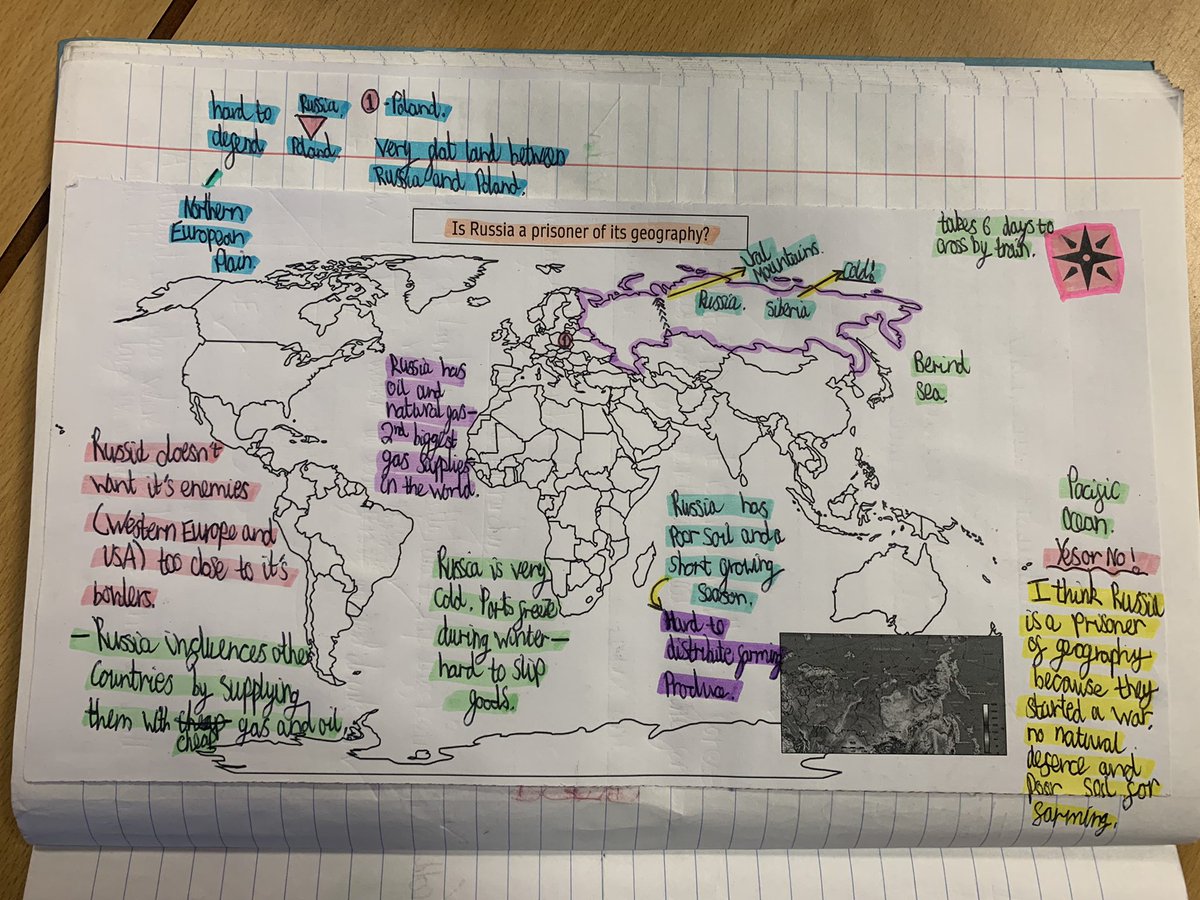 hard to
defend
Russia.
Poland.
1 - Poland.
very flat land between
Russia and Poland.
Northern
European
Plain.
Is Russia a prisoner of its geography?
takes 6 days to
cross by train.
Ural
Mountains.
Cold!
Russia.
Siberia
1
Berind
Sea.
Russia has
oil and
natural gas-
2nd biggest
gas supplies
in the world.
Russia doesn't
want it's enemies
(Western Europe and
USA) too close to it's
borders.
- Russia influences other
Countries by supplying
them with cheap gas and oil.
cheap
Russia is very
Cold. Ports freeze
during winter-
hard to ship
goods.
Russia has
Poor soil and a
short growing
season.
Hard to
distribute farming
Produce.
Pacific
Ocean.
Yes or No!
I think Russia
is a prisoner
of geography
because they
started a war,
no natural
defence and
poor soil for
farming.